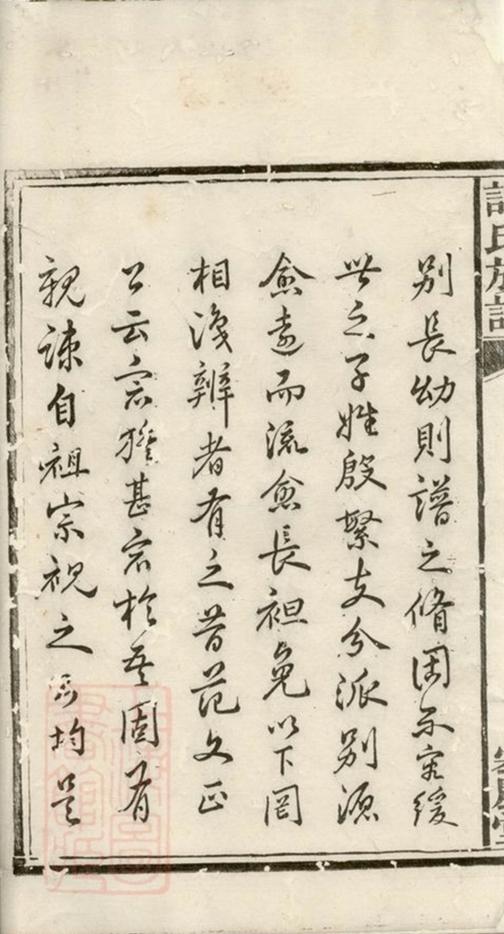 許氏族譜
別長幼則譜之脩固不容緩
世之子姓殷繁支分派別源
愈遠而流愈長袒免以下罔
相淺辨者有之昔范文正
公云宗族甚衆於吾固有
親疎自祖宗視之則均是